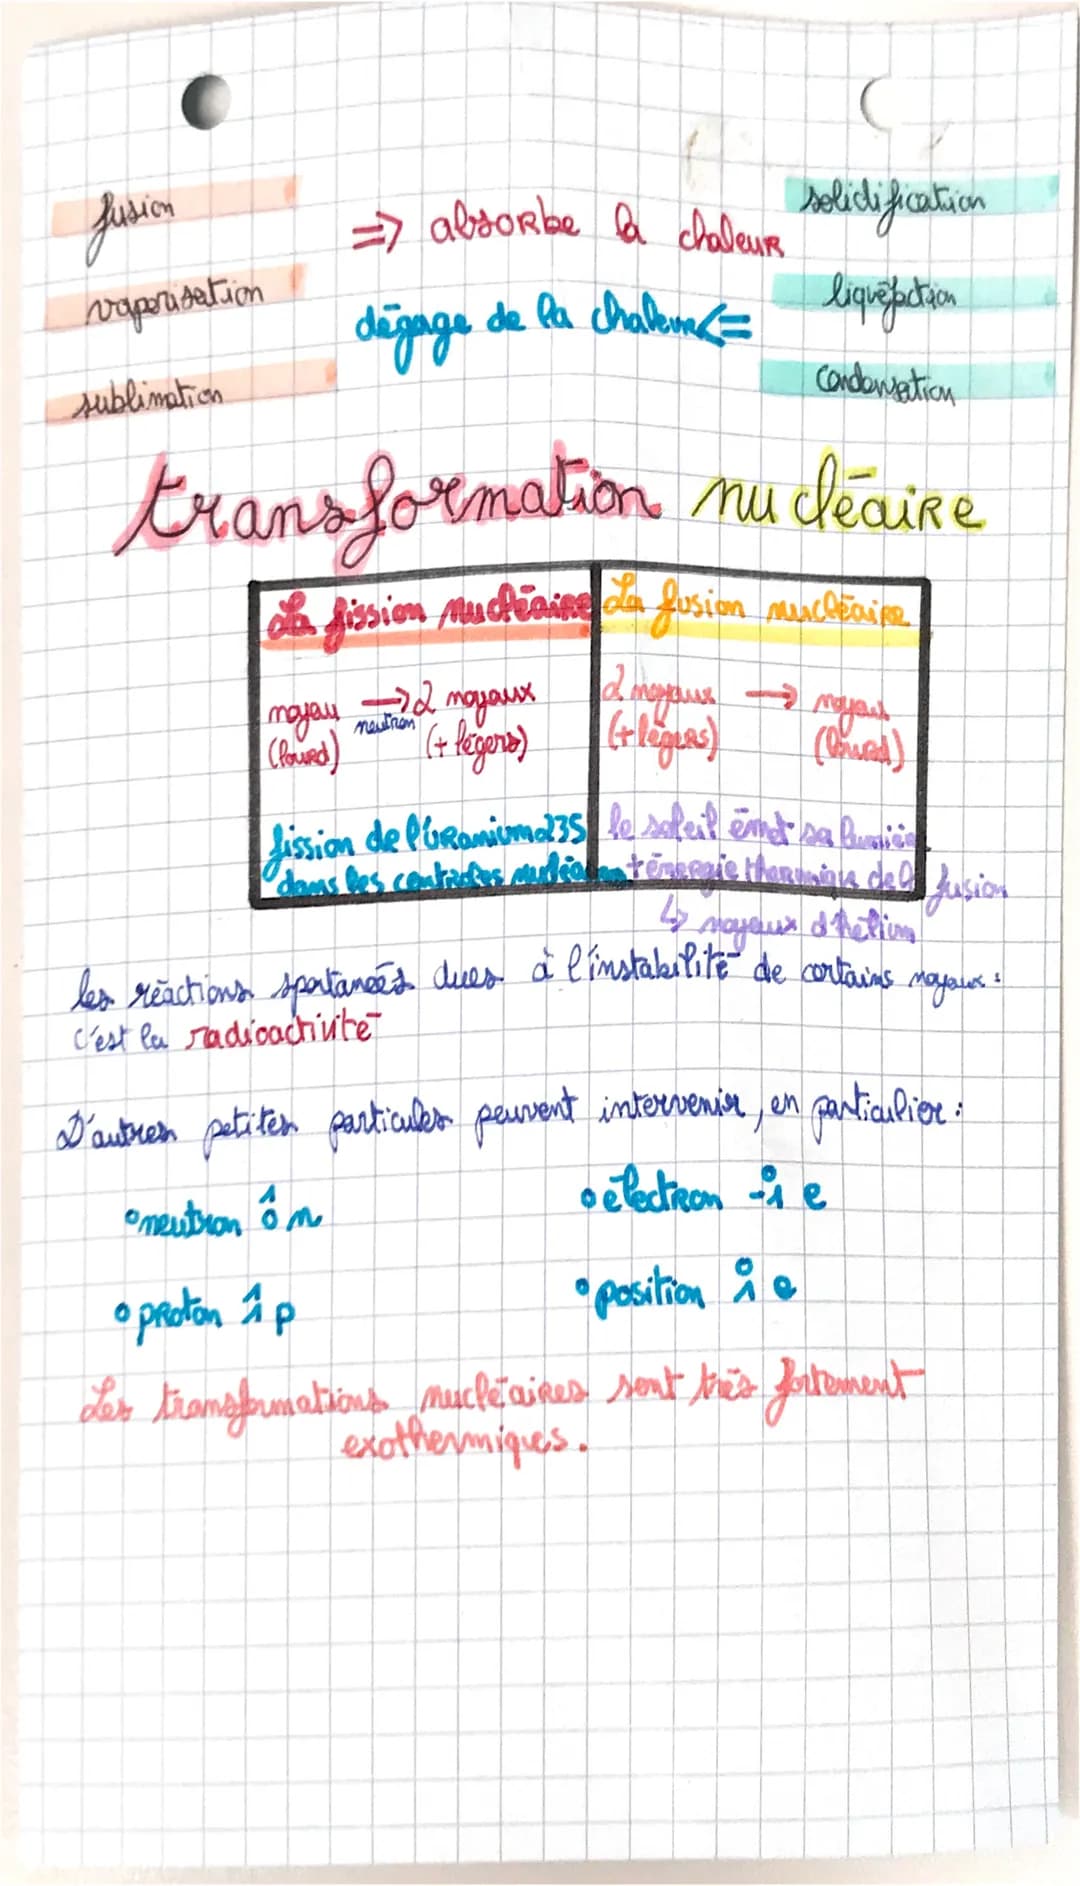 fusion
solidification
=> absorbe la chaleur
vaporisation
liquéfaction
dégage de la chaleur <=
sublimation
condensation
transformation nucléaire
La fission nucléaire
La fusion nucléaire
noyau → 2 noyaux
neutron
(lourd) (+ légers)
2 noyaux → noyau
(+ légers) (lourd)
fission de l'Uranium 235
dans les centrales nucléaires
le soleil émet sa lumière
+ énergie thermique de la fusion
↳ noyaux d'hélium
les réactions spontanées dues à l'instabilité de certains noyaux :
c'est la radioactivité
D'autres petites particules peuvent intervenir, en particulier :
• neutron ¹₀ n
• électron ⁰₋₁ e
• proton ¹₁ p
• position ⁰₁ e
Les transformations nucléaires sont très fortement
exothermiques.